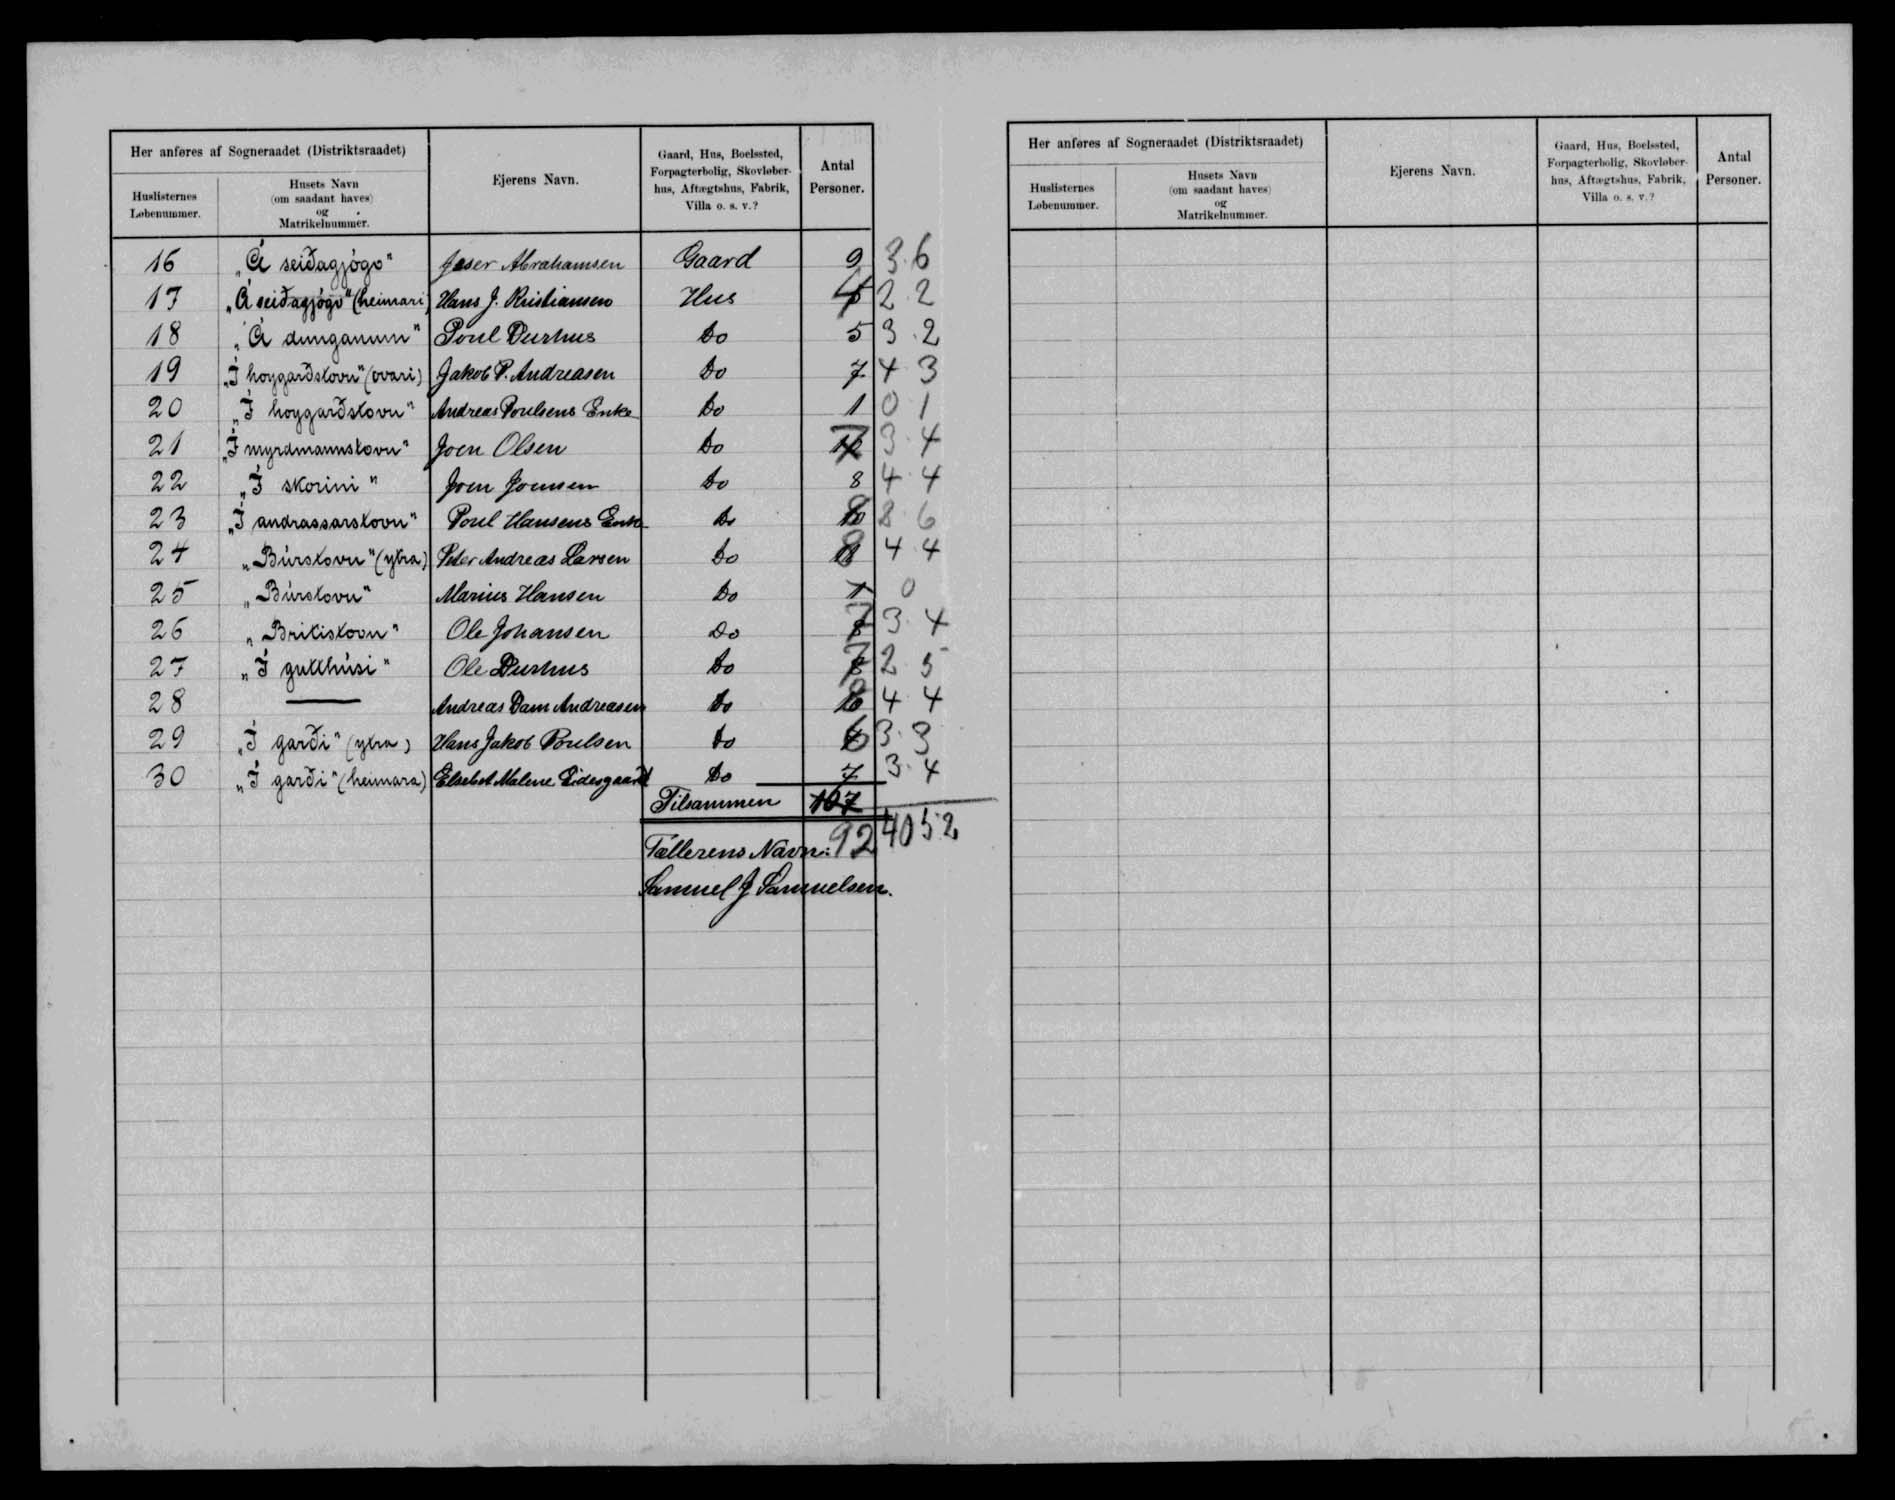 Her anføres af Sogneraadet (Distriktsraadet)
Huslisternes Løbenummer.
Husets Navn (om saadant haves) og Matrikelnummer.
Ejerens Navn.
Gaard, Hus, Boelssted, Forpagterbolig, Skovløberhus, Aftægtshus, Fabrik, Villa o. s. v.?
Antal Personer.
16 „Á seiðagjógv" Joser Abrahamsen Gaard 9 3.6
17 „Á seiðagjógv" (heimari) Hans J. Kristiansen Hus 4 2.2
18 „Á dunganum" Poul Durhus Do 5 3.2
19 „Í hoygarðstovu" (ovari) Jakob P. Andreasen Do 7 4 3
20 „Í hoygarðstovu" Andreas Poulsens Enke Do 1 0 1
21 „Í myrdmannstovu" Joen Olsen Do 7 3.4
22 „Í skorini" Joen Joensen Do 8 4.4
23 „Í andrassarstovu" Poul Hansens Enke Do 8 8.6
24 „Búrstovu" (ytra) Peter Andreas Larsen Do 8 4.4
25 „Búrstovu" Marius Hansen Do 1 0
26 „Britistovu" Ole Johansen Do 7 3.4
27 „Í gutthúsi" Ole Durhus Do 7 2.5
28 — Andreas Dam Andreasen Do 8 4.4
29 „Í garði" (ytra) Hans Jakob Poulsen Do 6 3.3
30 „Í garði" (heimara) Elsebet Malene Eidesgaard Do 7 3.4
Tilsammen 107
Tællerens Navn: 92 40 52
Samuel J Samuelsen.
Her anføres af Sogneraadet (Distriktsraadet)
Huslisternes Løbenummer.
Husets Navn (om saadant haves) og Matrikelnummer.
Ejerens Navn.
Gaard, Hus, Boelssted, Forpagterbolig, Skovløberhus, Aftægtshus, Fabrik, Villa o. s. v.?
Antal Personer.